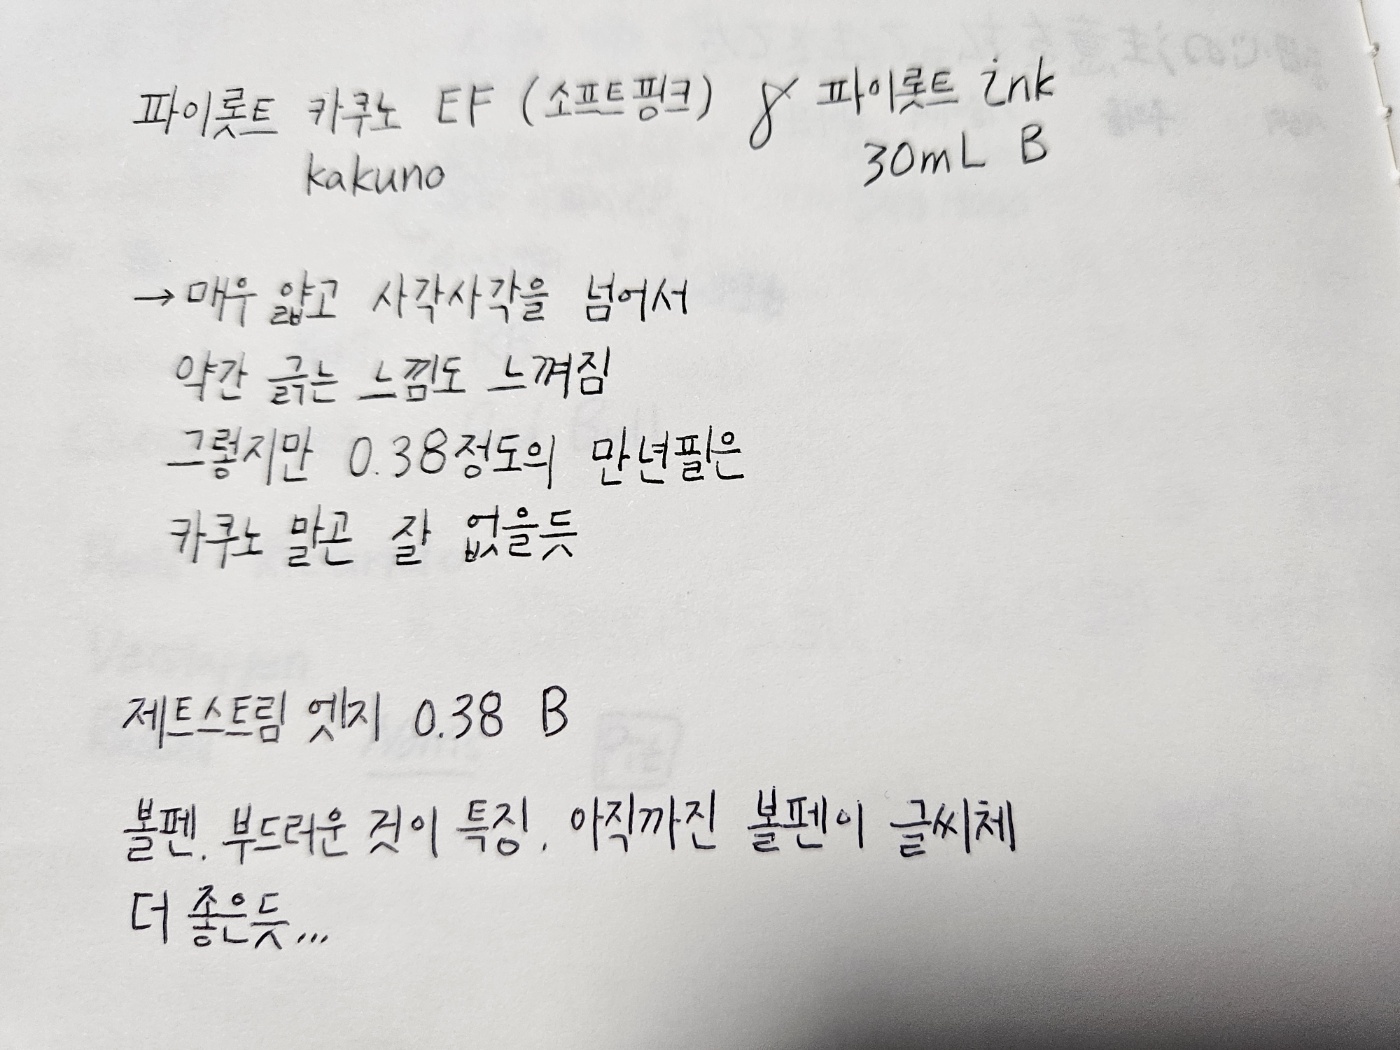 파이롯트 카쿠노 EF (소프트핑크) & 파이롯트 ink
kakuno 30mL B
→ 매우 얇고 사각사각을 넘어서
약간 긁는 느낌도 느껴짐
그렇지만 0.38정도의 만년필은
카쿠노 말곤 잘 없을듯
제트스트림 엣지 0.38 B
볼펜. 부드러운 것이 특징. 아직까진 볼펜이 글씨체
더 좋은듯...